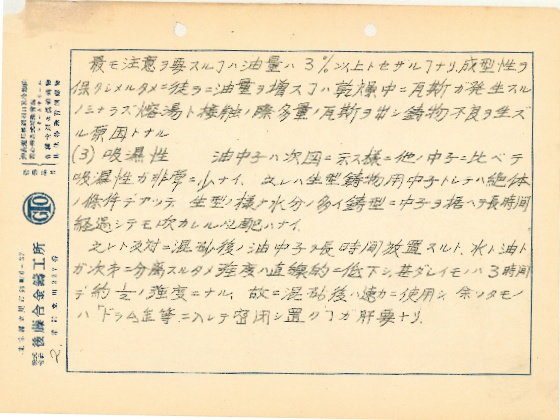 最モ注意ヲ要スルヿハ油量ハ3%以上トセザルヿナリ.成型性ヲ
保タシメルタメニ徒ラニ油量ヲ増スヿハ乾燥中ニ瓦斯ガ発生スル
ノミナラズ熔湯ト接触ノ際多量ノ瓦斯ヲ出シ鋳物不良ヲ生ズ
ル原因トナル
(3) 吸湿性 油中子ハ次図ニ示ス様ニ他ノ中子ニ比ベテ
吸湿性ガ非常ニ少ナイ. 之レハ生型鋳物用中子トシテハ絶体
ノ條件デアッテ 生型ノ様ナ水分ノ多イ鋳型ニ中子ヲ据ヘテ長時間
経過シテモ吹カレル心配ハナイ.
之レト反対ニ混砂後ノ油中子ヲ長時間放置スルト、水ト油ト
ガ次第ニ分離スルタメ強度ハ直線的ニ低下シ.甚ダシイモノハ3時間
デ約½ノ強度ニナル. 故ニ混砂後ハ速カニ使用シ 余ッタモノ
ハドラム缶等ニ入レテ密閉シ置クヿガ肝要ナリ.
株式会社 後藤合金鋳工所
2.